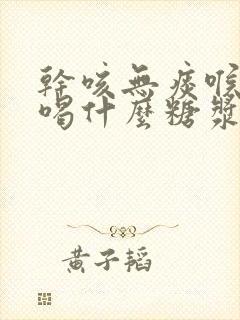 幹咳無痰喉
喝什麼糖漿
黃子韜